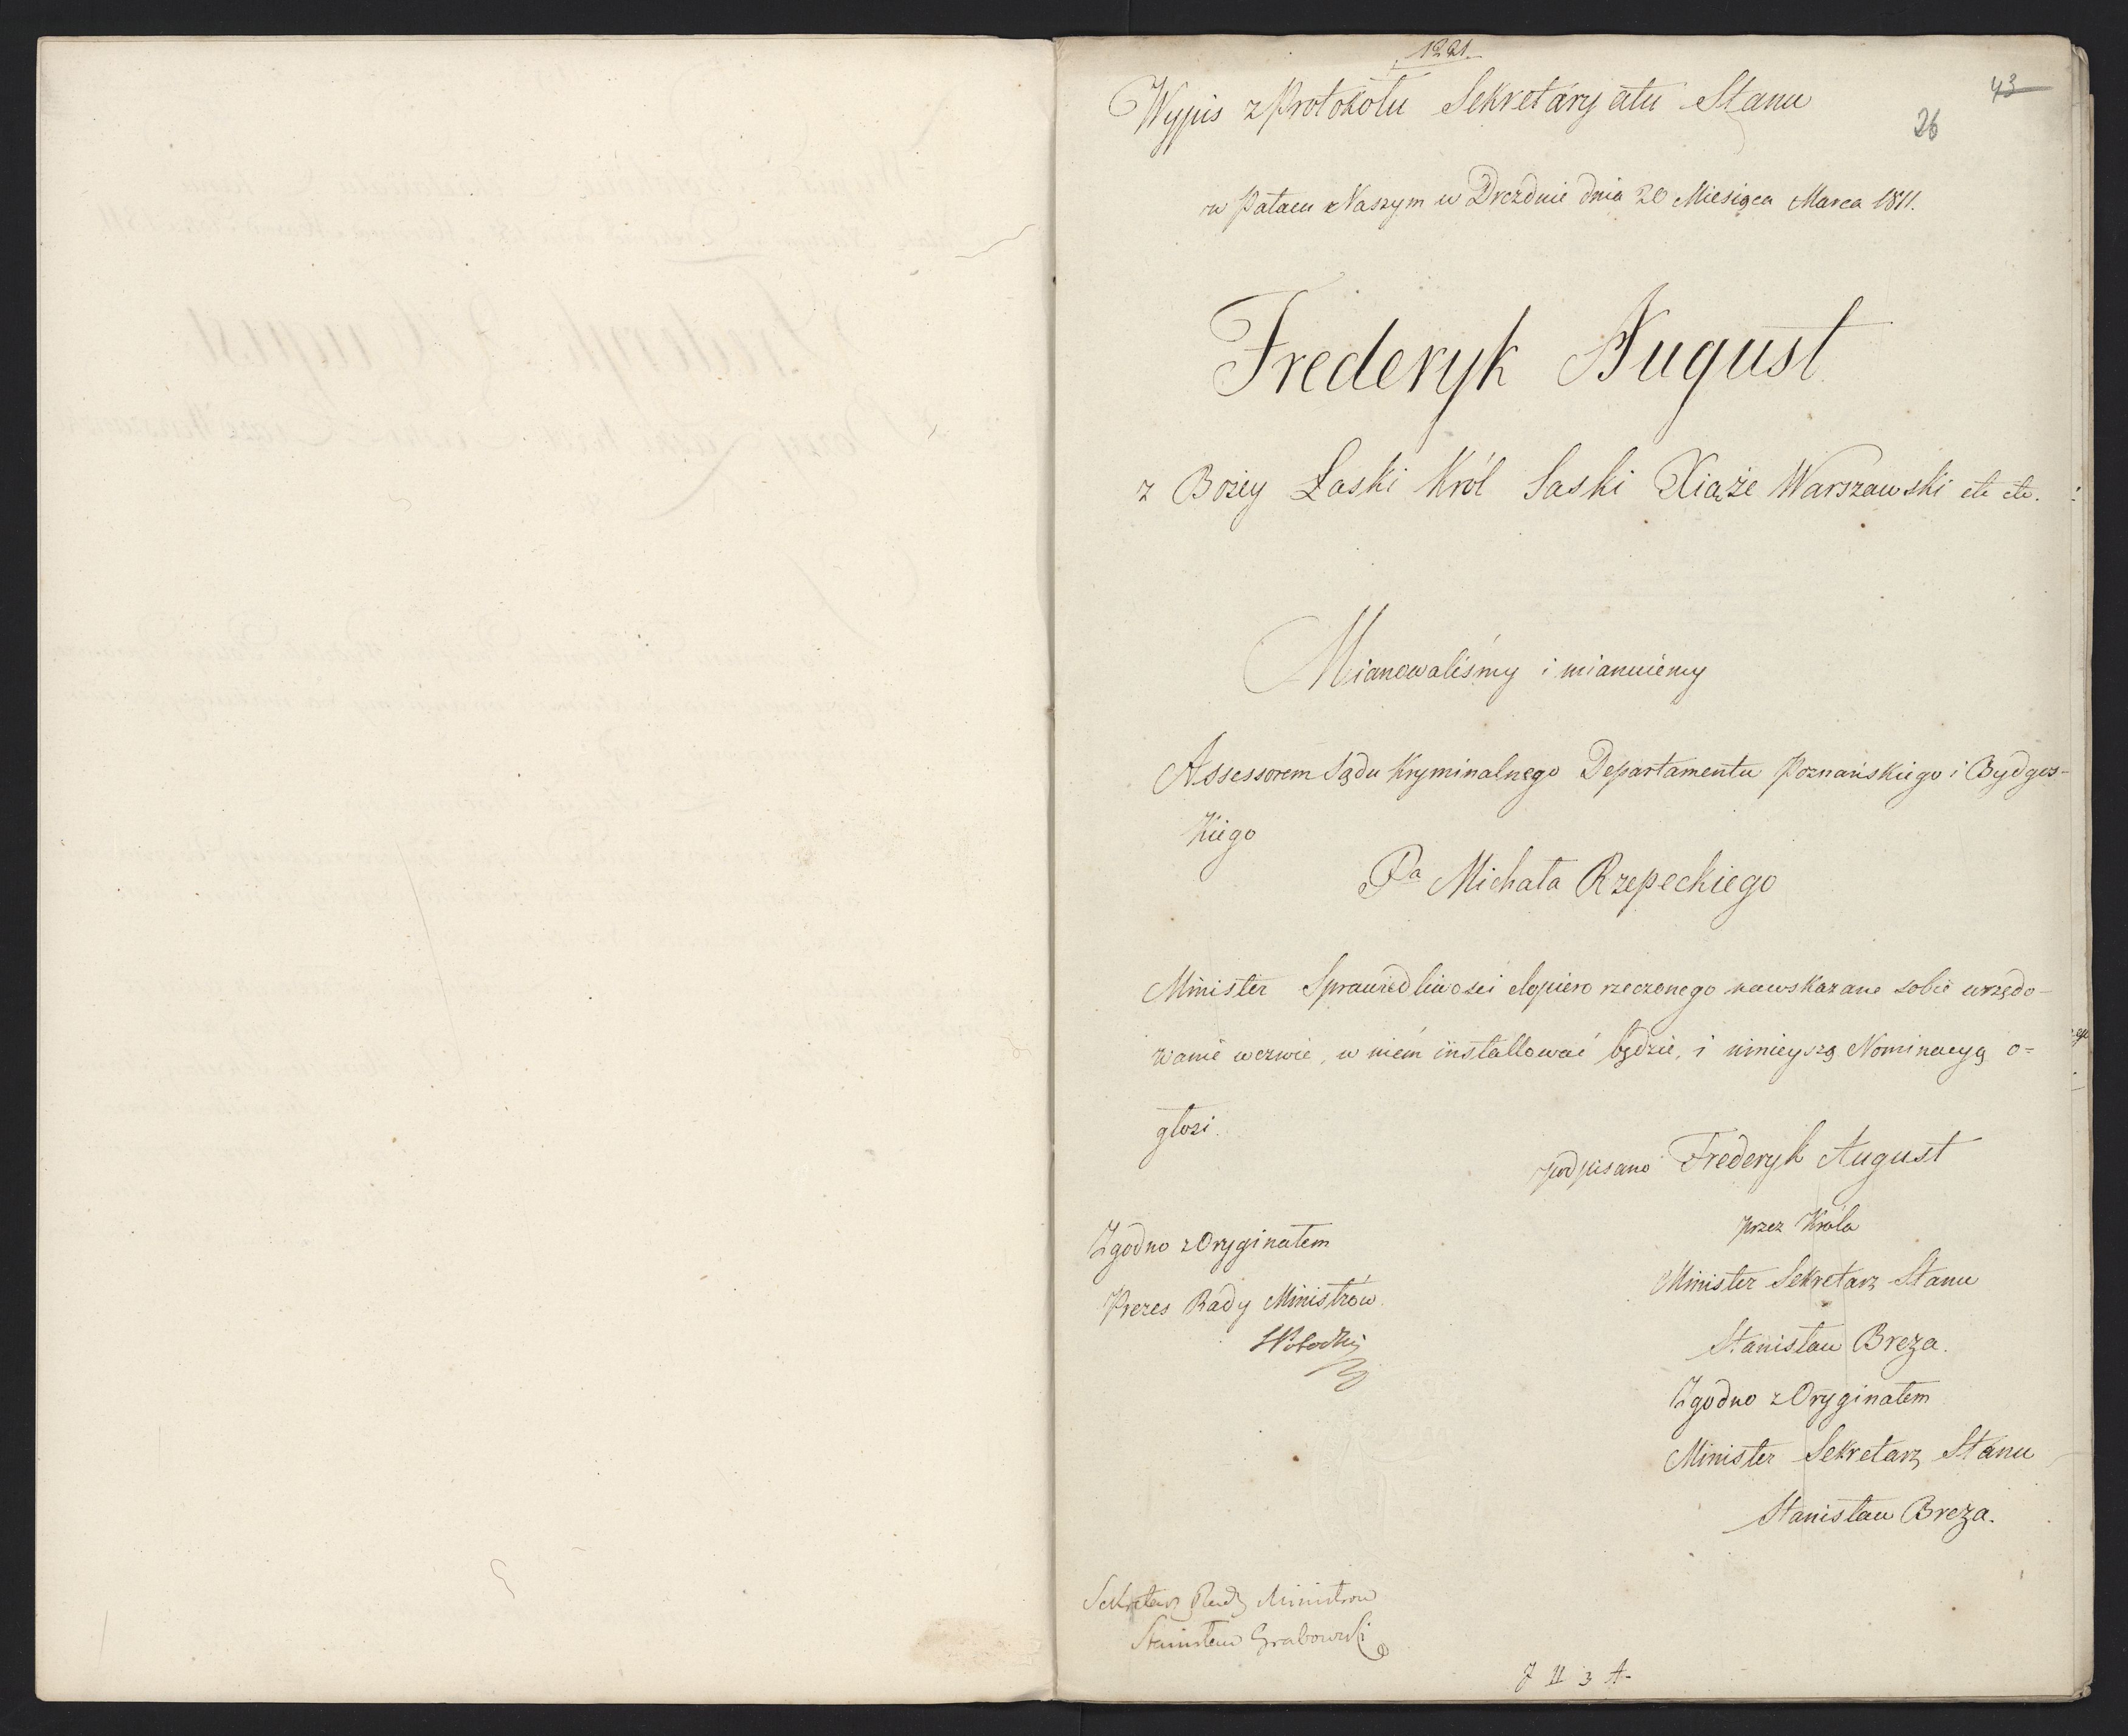 1221.
43
26
Wypis z Protokołu Sekretaryatu Stanu
w Pałacu Naszym w Dreznie dnia 20 Miesiąca Marca 1811.
Frederyk August
z Bożey Łaski Król Saski Xiąże Warszawski etc etc.
Mianowaliśmy i mianuiemy
Assessorem Sądu Kryminalnego Departamentu Poznańskiego i Bydgos-
kiego
Pa Michała Rzepeckiego
Minister Sprawiedliwości dopiero rzeczonego na wskazane sobie urzędo-
wanie wezwie, w niém installować będzie, i ninieyszą Nominacyą o=
głosi.
podpisano Frederyk August
przez Króla
Minister Sekretarz Stanu
Stanisław Breza.
Zgodno z Oryginałem
Minister Sekretarz Stanu
Stanisław Breza.
Zgodno z Oryginałem
Prezes Rady Ministrów.
SPotocki
Sekretarz Rady Ministrow
Stanisław Grabowski
J II 3 A.